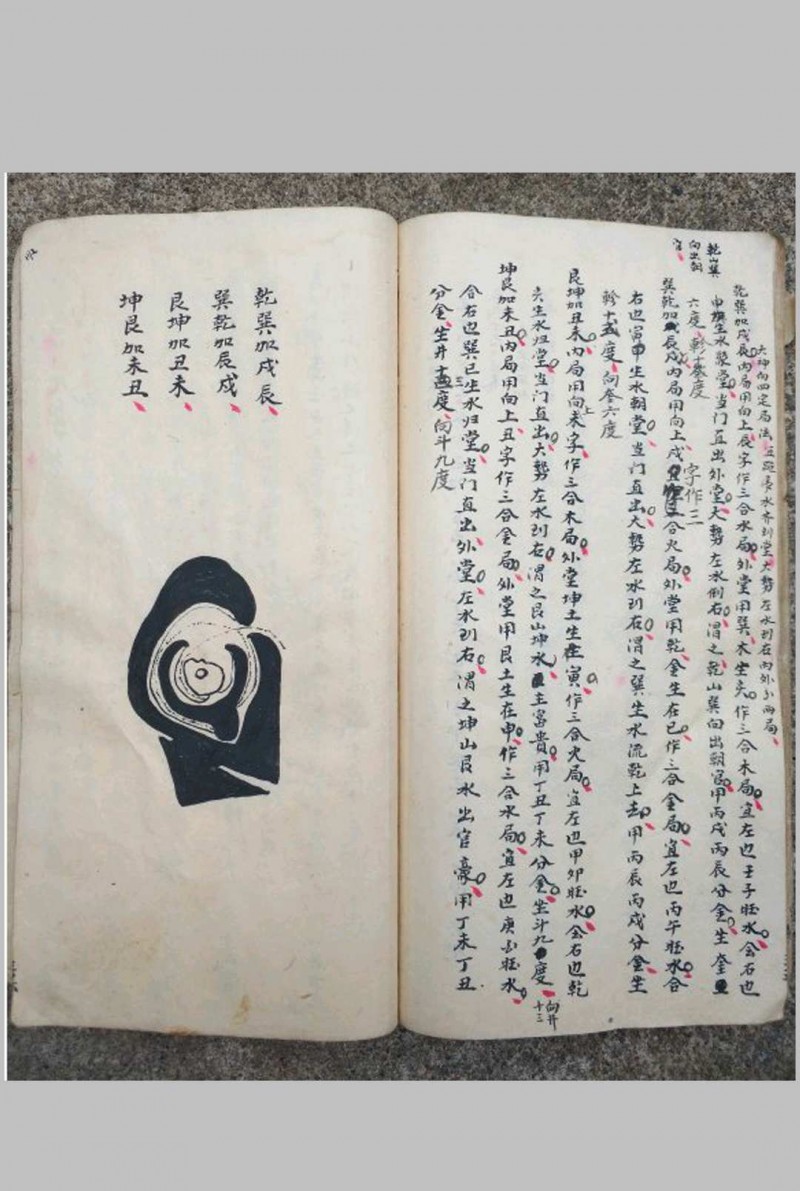 大坤向四定局法
水齐到堂大势左水到右内外分两局
乾山巽
向出朝
官
乾巽加戌辰内局用向上辰字作三合水局外堂用巽木生亥作三合木局宜左也壬子旺水会右也
申生水聚堂当门直出外堂大势左水倒右谓之乾山巽向出朝官甲丙戌丙辰分金坐奎
六度轸十度
巽乾加辰戌内局用向上戌字作三合火局外堂用乾金生在巳作三合金局宜左也丙午旺水合
右也寅甲生水朝堂当门直出大势左水到右谓之巽生水流乾上去甲丙辰丙戌分金坐
轸十度向奎六度
艮坤加丑未内局用向上未字作三合木局外堂坤土生在寅作三合火局宜左也甲卯旺水会右也乾
亥生水归堂当门直出大势左水到右谓之艮山坤水主富贵用丁丑丁未分金坐斗九度向井
十三
坤艮加未丑内局用向上丑字作三合金局外堂用艮土生在申作三合水局宜左也庚酉旺水
合右也巽巳生水归堂当门直出外堂左水到右谓之坤山艮水出官豪用丁未丁丑
分金坐井十三度向斗九度
乾巽加戌辰
巽乾加辰戌
艮坤加丑未
坤艮加未丑